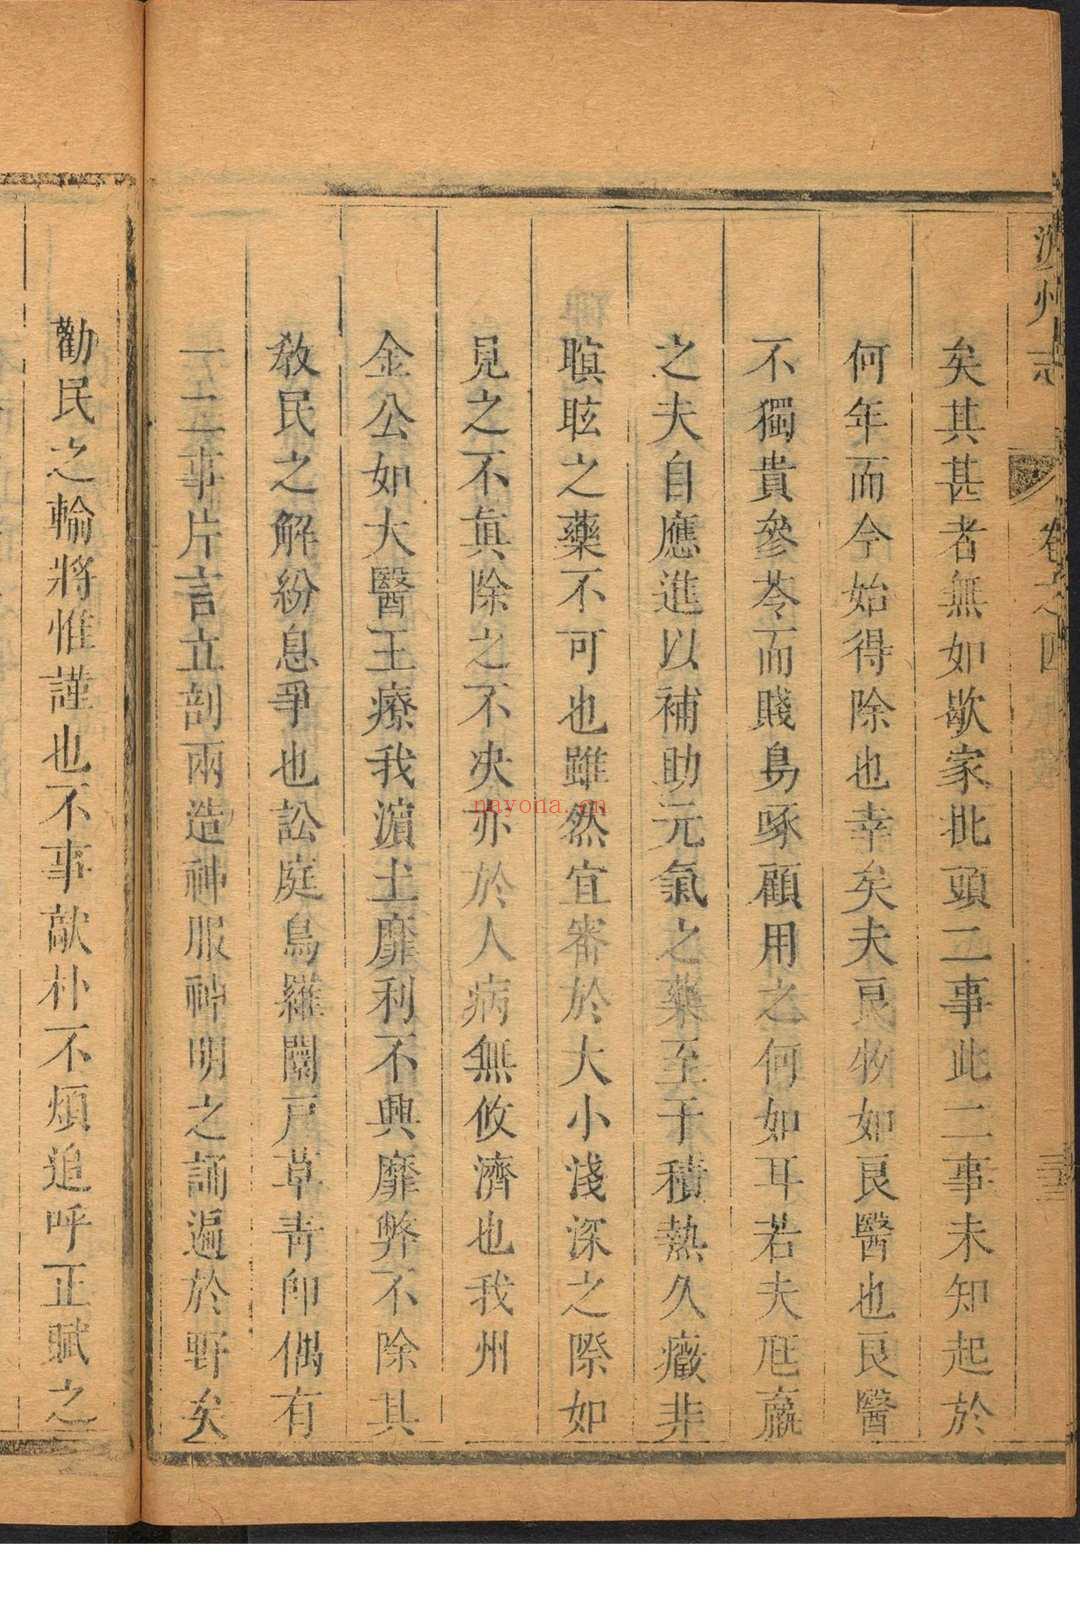 州志
卷之四
矣其甚者無如歇家批頭二事此二事未知起於
何年而今始得除也幸矣夫良牧如良醫也良醫
不獨貴參苓而賤烏啄顧用之何如耳若夫尪羸
之夫自應進以補助元氣之藥至于積熱久癥非
瞑眩之藥不可也雖然宜審於大小淺深之際如
見之不真除之不决亦於人病無攸濟也我州
金公如大醫王療我濵土靡利不興靡弊不除其
教民之解紛息爭也訟庭鳥羅閴戸草青卽偶有
一二事片言立剖兩造神服神明之誦遍於野矣
勸民之輸將惟謹也不事敲朴不煩追呼正賦之
nayona.cn